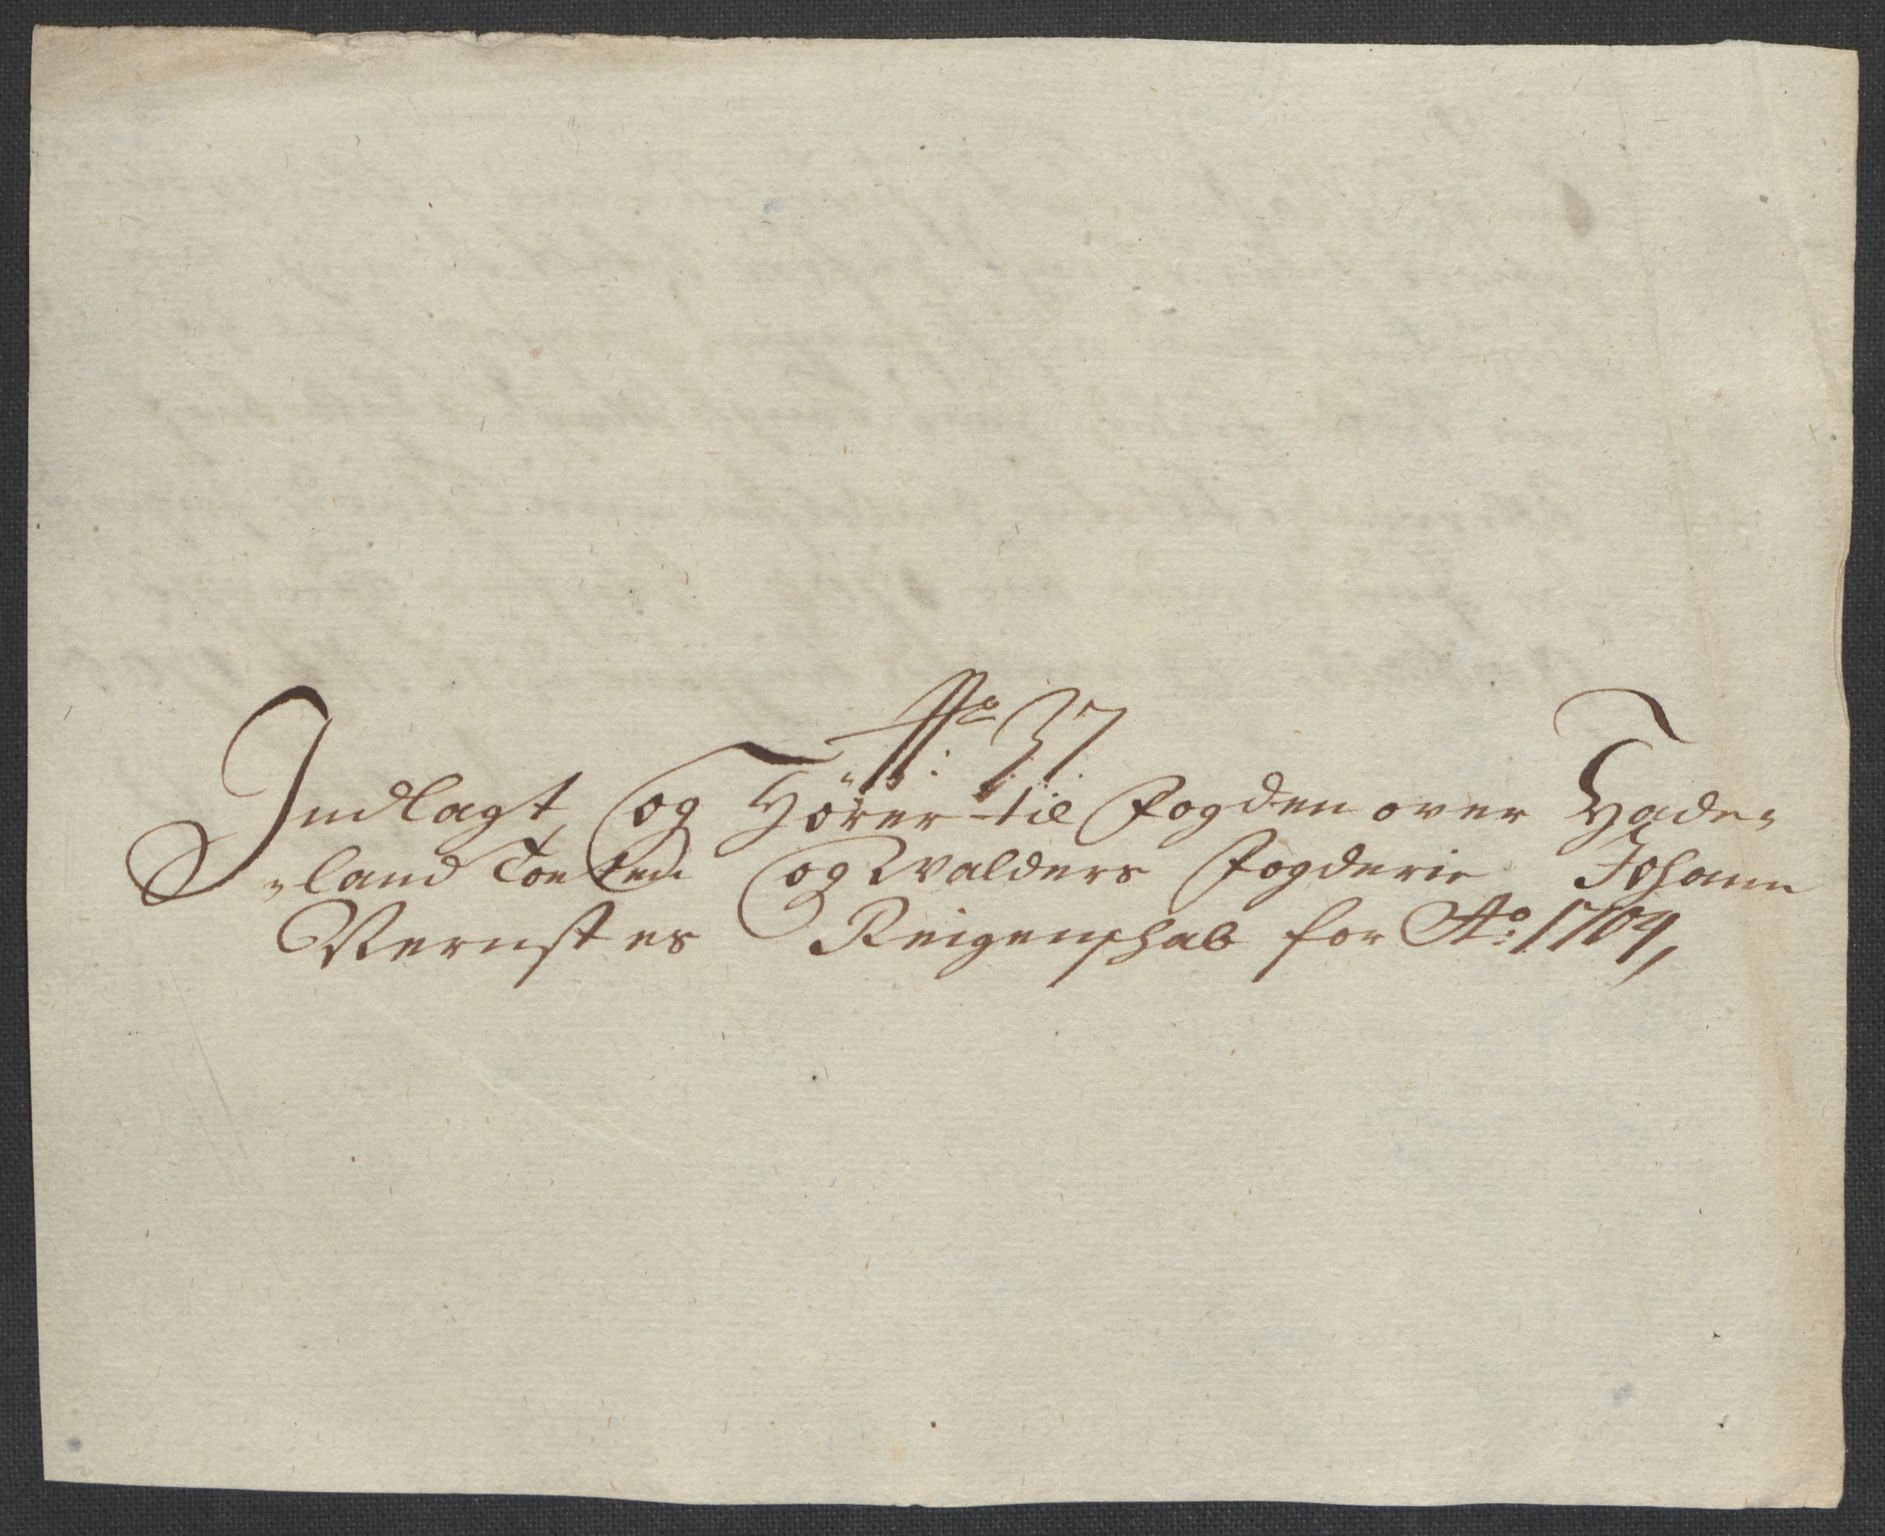 No: 37.
Indlagt og Hörer til Fogden over Hade-
-land Toeten og Walders Fogderie Johann
Vernstes Reigenschab for Ao: 1709,